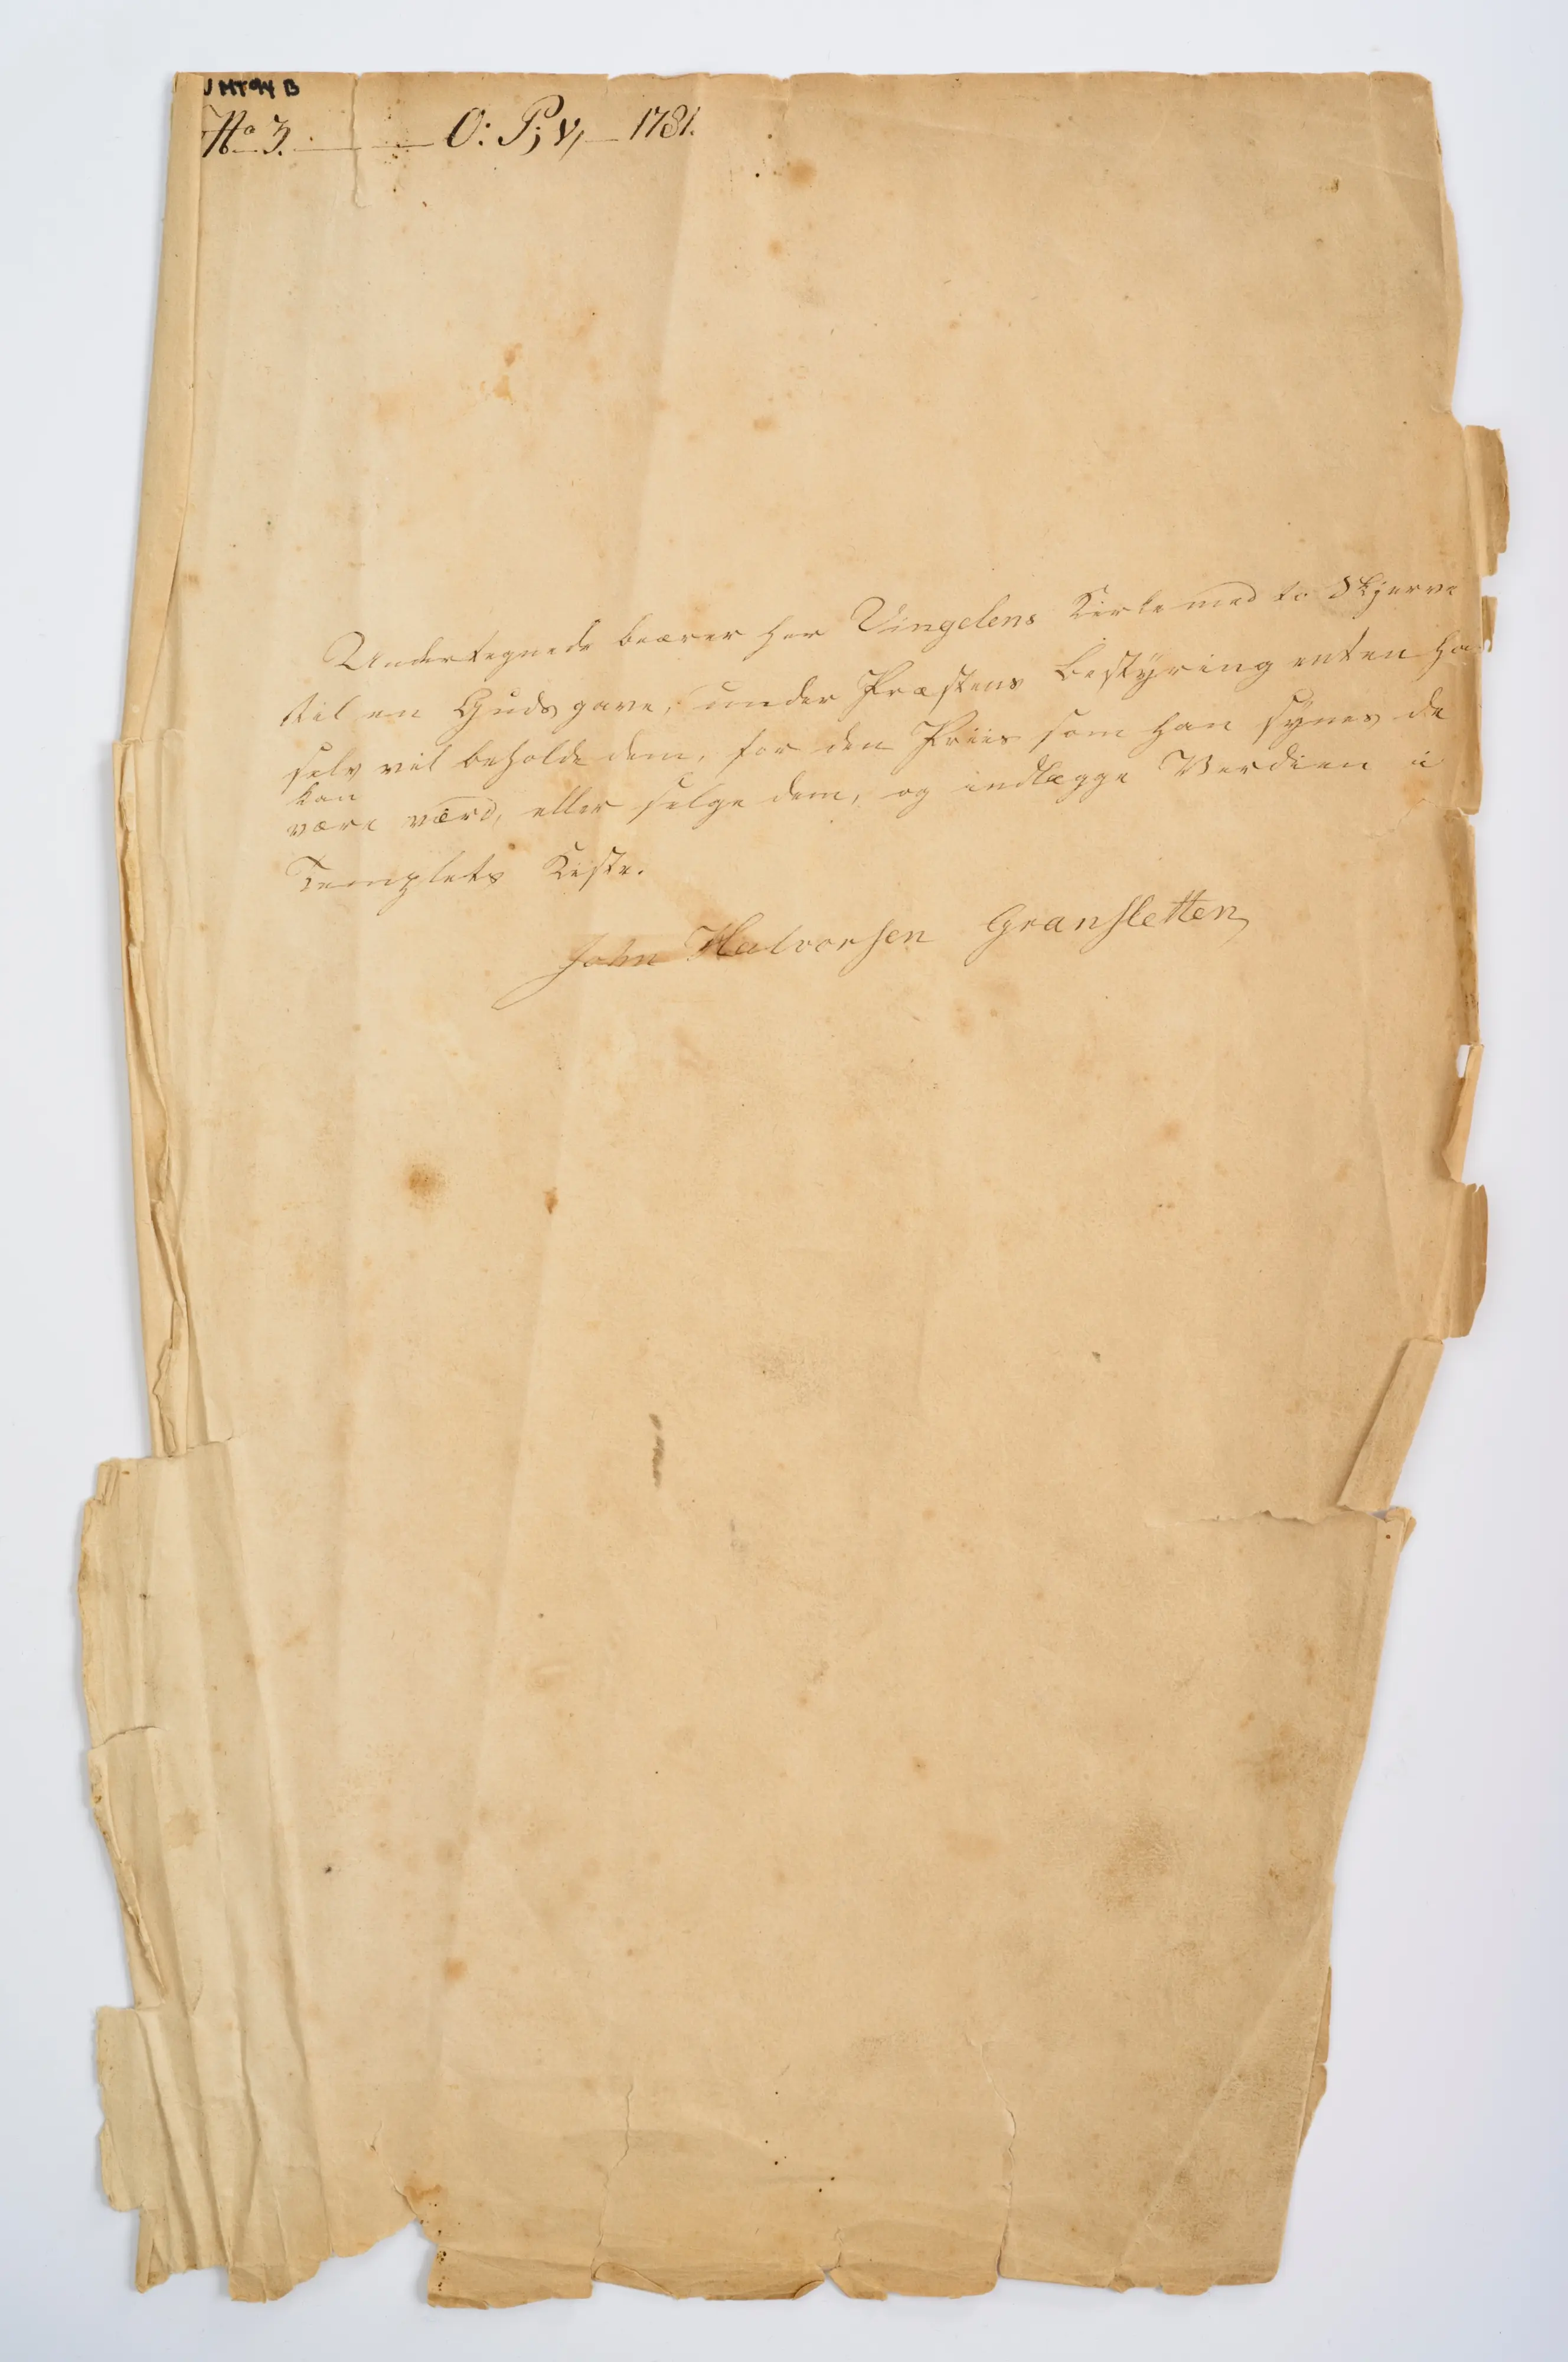 VMT94 B
No 3. O: P; V, 1781.
Undertegnede beærer her Vingelens Kirke med to Skjerve
til en Guds gave, under Præstens Bestÿring enten ha
selv vil beholde dem, for den Priis som han sÿnes de
kan
være værd, eller selge dem, og indlægge Verdien i
Templets Kiste.
John Halvorsen Gransletten